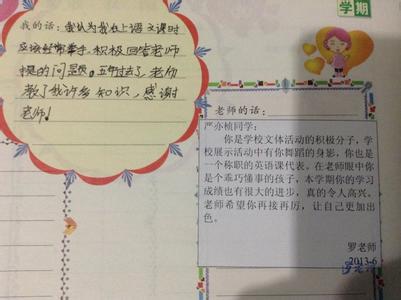 学期
我的话：我认为我在上语文课时
应该经常举手。积极回答老师
提的问题。五年过去了，老师
教了我许多知识，感谢
老师！
老师的话：
严亦桢同学：
你是学校文体活动的积极分子，学
校展示活动中有你舞蹈的身影，你也是
一个称职的英语课代表。在老师眼中你
是个乖巧懂事的孩子，本学期你的学习
成绩也有很大的进步，真的令人高兴。
老师希望你再接再厉，让自己更加出
色。
罗老师
2013-6